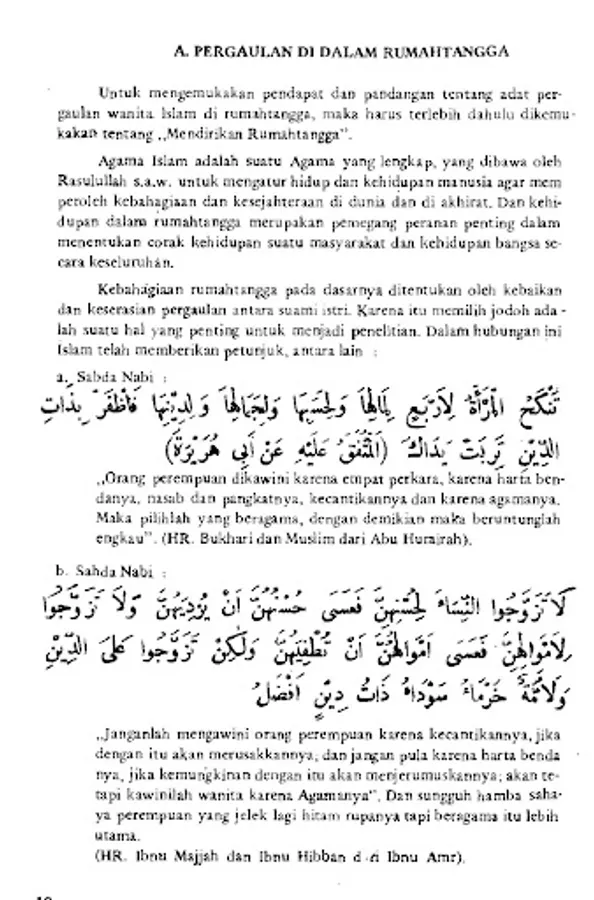 A. PERGAULAN DI DALAM RUMAHTANGGA
Untuk mengemukakan pendapat dan pandangan tentang adat per-
gaulan wanita Islam di rumahtangga, maka harus terlebih dahulu dikemu-
kakan tentang ,,Mendirikan Rumahtangga".
Agama Islam adalah suatu Agama yang lengkap, yang dibawa oleh
Rasulullah s.a.w. untuk mengatur hidup dan kehidupan manusia agar mem
peroleh kebahagiaan dan kesejahteraan di dunia dan di akhirat. Dan kehi-
dupan dalam rumahtangga merupakan pemegang peranan penting dalam
menentukan corak kehidupan suatu masyarakat dan kehidupan bangsa se-
cara keseluruhan.
Kebahagiaan rumahtangga pada dasarnya ditentukan oleh kebaikan
dan keserasian pergaulan antara suami istri. Karena itu memilih jodoh ada -
lah suatu hal yang penting untuk menjadi penelitian. Dalam hubungan ini
Islam telah memberikan petunjuk, antara lain :
a. Sabda Nabi :
تُنْكَحُ الْمَرْأَةُ لِأَرْبَعٍ لِمَالِهَا وَلِحَسَبِهَا وَلِجَمَالِهَا وَلِدِيْنِهَا فَاظْفَرْ بِذَاتِ
الدِّيْنِ تَرِبَتْ يَدَاكَ (اَلْمُتَّفَقُ عَلَيْهِ عَنْ أَبِى هُرَيْرَةَ)
,,Orang perempuan dikawini karena empat perkara, karena harta ben-
danya, nasab dan pangkatnya, kecantikannya dan karena agamanya.
Maka pilihlah yang beragama, dengan demikian maka beruntunglah
engkau". (HR. Bukhari dan Muslim dari Abu Hurairah).
b. Sabda Nabi :
لَا تَزَوَّجُوا النِّسَاءَ لِحُسْنِهِنَّ فَعَسَى حُسْنُهُنَّ اَنْ يُرْدِيَهُنَّ وَلَا تَزَوَّجُوا
لِاَمْوَالِهِنَّ فَعَسَى اَمْوَالُهُنَّ اَنْ تُطْغِيَهُنَّ وَلٰكِنْ تَزَوَّجُوا عَلَى الدِّيْنِ
وَلَأَمَةٌ خَرْمَاءُ سَوْدَاءُ ذَاتُ دِيْنٍ اَفْضَلُ
,,Janganlah mengawini orang perempuan karena kecantikannya, jika
dengan itu akan merusakkannya; dan jangan pula karena harta benda
nya, jika kemungkinan dengan itu akan menjerumuskannya; akan te-
tapi kawinilah wanita karena Agamanya". Dan sungguh hamba saha-
ya perempuan yang jelek lagi hitam rupanya tapi beragama itu lebih
utama.
(HR. Ibnu Majjah dan Ibnu Hibban d ri Ibnu Amr).